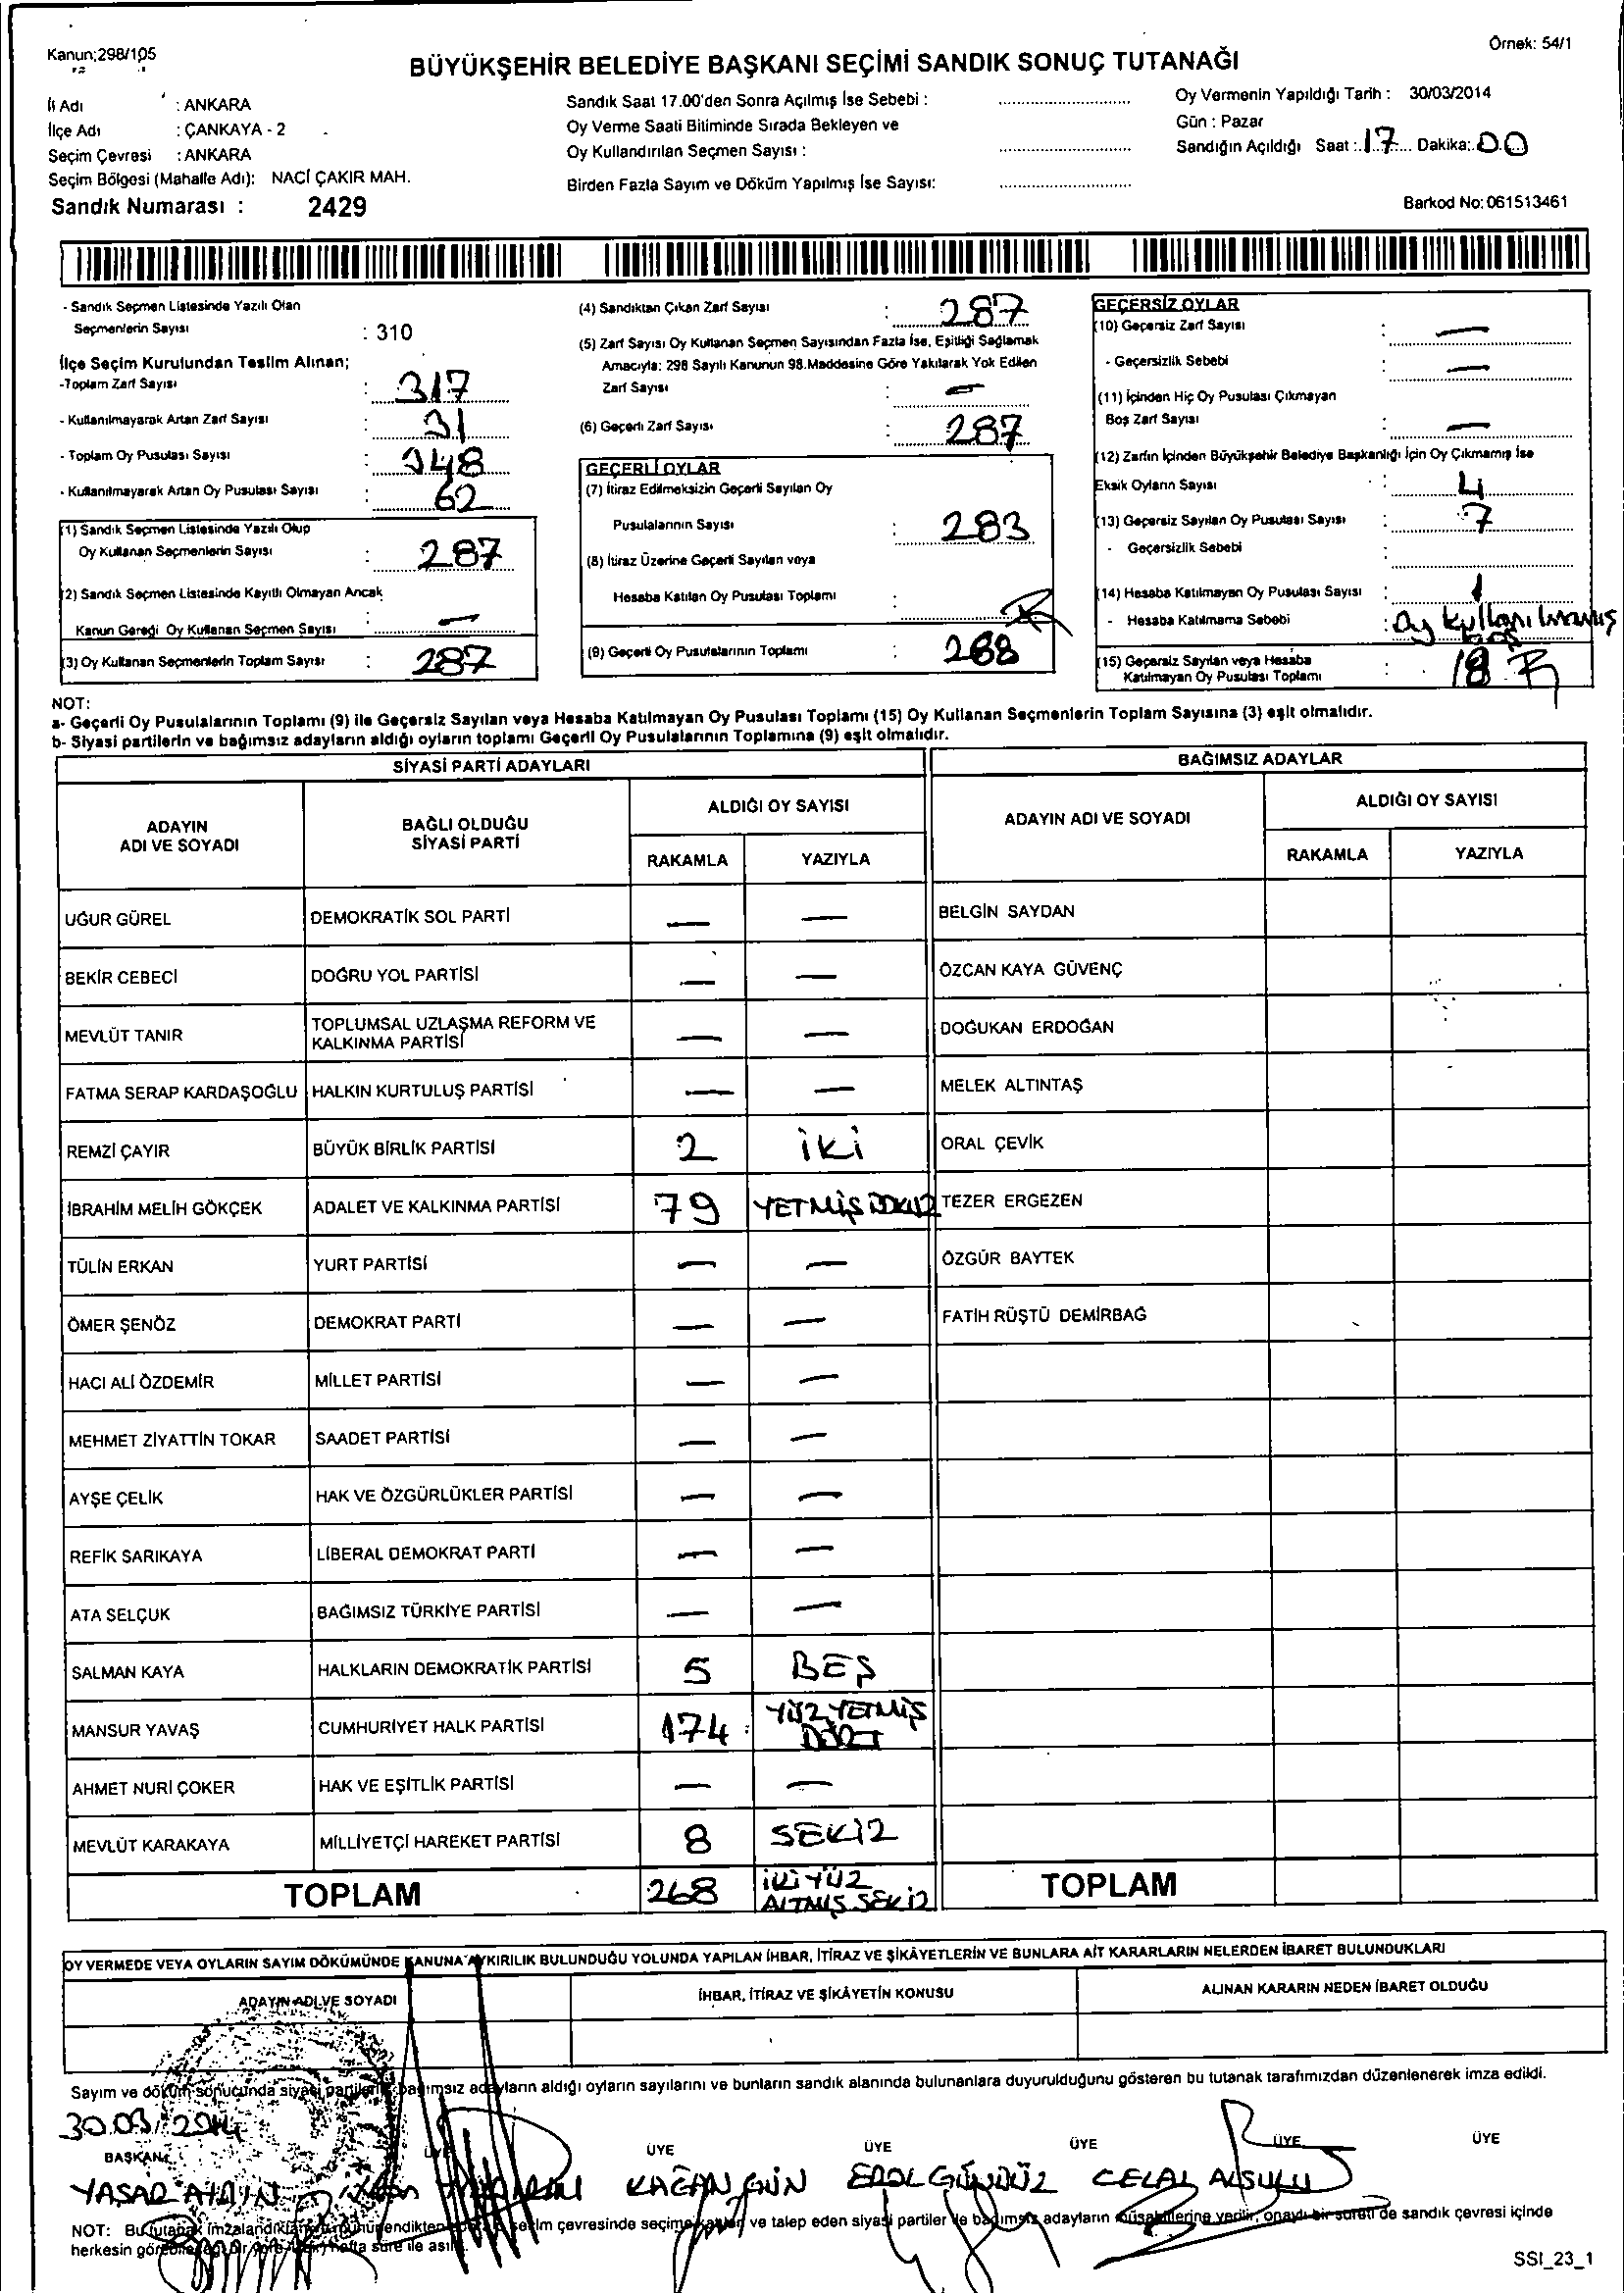 Kanun;298/105
Örnek: 54/1
BÜYÜKŞEHİR BELEDİYE BAŞKANI SEÇİMİ SANDIK SONUÇ TUTANAĞI
İl Adı : ANKARA
İlçe Adı : ÇANKAYA - 2
Seçim Çevresi : ANKARA
Seçim Bölgesi (Mahalle Adı): NACİ ÇAKIR MAH.
Sandık Numarası : 2429
Sandık Saat 17.00'den Sonra Açılmış İse Sebebi :
Oy Verme Saati Bitiminde Sırada Bekleyen ve
Oy Kullandırılan Seçmen Sayısı :
Birden Fazla Sayım ve Döküm Yapılmış İse Sayısı:
Oy Vermenin Yapıldığı Tarih : 30/03/2014
Gün : Pazar
Sandığın Açıldığı Saat : 17 Dakika: 00
Barkod No: 061513461
- Sandık Seçmen Listesinde Yazılı Olan
Seçmenlerin Sayısı : 310
İlçe Seçim Kurulundan Teslim Alınan;
-Toplam Zarf Sayısı : 317
- Kullanılmayarak Artan Zarf Sayısı : 31
- Toplam Oy Pusulası Sayısı : 348
- Kullanılmayarak Artan Oy Pusulası Sayısı : 62
(1) Sandık Seçmen Listesinde Yazılı Olup
Oy Kullanan Seçmenlerin Sayısı : 287
(2) Sandık Seçmen Listesinde Kayıtlı Olmayan Ancak
Kanun Gereği Oy Kullanan Seçmen Sayısı : —
(3) Oy Kullanan Seçmenlerin Toplam Sayısı : 287
(4) Sandıktan Çıkan Zarf Sayısı : 287
(5) Zarf Sayısı Oy Kullanan Seçmen Sayısından Fazla İse, Eşitliği Sağlamak
Amacıyla; 298 Sayılı Kanunun 98.Maddesine Göre Yakılarak Yok Edilen
Zarf Sayısı : —
(6) Geçerli Zarf Sayısı : 287
GEÇERLİ OYLAR
(7) İtiraz Edilmeksizin Geçerli Sayılan Oy
Pusulalarının Sayısı : 283
(8) İtiraz Üzerine Geçerli Sayılan veya
Hesaba Katılan Oy Pusulası Toplamı :
(9) Geçerli Oy Pusulalarının Toplamı : 268
GEÇERSİZ OYLAR
(10) Geçersiz Zarf Sayısı : —
- Geçersizlik Sebebi : —
(11) İçinden Hiç Oy Pusulası Çıkmayan
Boş Zarf Sayısı : —
(12) Zarfın İçinden Büyükşehir Belediye Başkanlığı İçin Oy Çıkmamış İse
Eksik Oyların Sayısı : 4
(13) Geçersiz Sayılan Oy Pusulası Sayısı : 7
- Geçersizlik Sebebi :
(14) Hesaba Katılmayan Oy Pusulası Sayısı : 1
- Hesaba Katılmama Sebebi : oy kullanılmamış
boş
(15) Geçersiz Sayılan veya Hesaba
Katılmayan Oy Pusulası Toplamı : 18
NOT:
a- Geçerli Oy Pusulalarının Toplamı (9) ile Geçersiz Sayılan veya Hesaba Katılmayan Oy Pusulası Toplamı (15) Oy Kullanan Seçmenlerin Toplam Sayısına (3) eşit olmalıdır.
b- Siyasi partilerin ve bağımsız adayların aldığı oyların toplamı Geçerli Oy Pusulalarının Toplamına (9) eşit olmalıdır.
SİYASİ PARTİ ADAYLARI
BAĞIMSIZ ADAYLAR
ADAYIN
ADI VE SOYADI
BAĞLI OLDUĞU
SİYASİ PARTİ
ALDIĞI OY SAYISI
RAKAMLA YAZIYLA
ADAYIN ADI VE SOYADI
ALDIĞI OY SAYISI
RAKAMLA YAZIYLA
UĞUR GÜREL DEMOKRATİK SOL PARTİ — — BELGİN SAYDAN
BEKİR CEBECİ DOĞRU YOL PARTİSİ — — ÖZCAN KAYA GÜVENÇ
MEVLÜT TANIR TOPLUMSAL UZLAŞMA REFORM VE
KALKINMA PARTİSİ — — DOĞUKAN ERDOĞAN
FATMA SERAP KARDAŞOĞLU HALKIN KURTULUŞ PARTİSİ — — MELEK ALTINTAŞ
REMZİ ÇAYIR BÜYÜK BİRLİK PARTİSİ 2 iki ORAL ÇEVİK
İBRAHİM MELİH GÖKÇEK ADALET VE KALKINMA PARTİSİ 79 YETMİŞ DOKUZ TEZER ERGEZEN
TÜLİN ERKAN YURT PARTİSİ — — ÖZGÜR BAYTEK
ÖMER ŞENÖZ DEMOKRAT PARTİ — — FATİH RÜŞTÜ DEMİRBAĞ
HACI ALİ ÖZDEMİR MİLLET PARTİSİ — —
MEHMET ZİYATTİN TOKAR SAADET PARTİSİ — —
AYŞE ÇELİK HAK VE ÖZGÜRLÜKLER PARTİSİ — —
REFİK SARIKAYA LİBERAL DEMOKRAT PARTİ — —
ATA SELÇUK BAĞIMSIZ TÜRKİYE PARTİSİ — —
SALMAN KAYA HALKLARIN DEMOKRATİK PARTİSİ 5 BEŞ
MANSUR YAVAŞ CUMHURİYET HALK PARTİSİ 174 YÜZ YETMİŞ
DÖRT
AHMET NURİ ÇOKER HAK VE EŞİTLİK PARTİSİ — —
MEVLÜT KARAKAYA MİLLİYETÇİ HAREKET PARTİSİ 8 SEKİZ
TOPLAM 268 İKİ YÜZ
ALTMIŞ SEKİZ
TOPLAM
OY VERMEDE VEYA OYLARIN SAYIM DÖKÜMÜNDE KANUNA AYKIRILIK BULUNDUĞU YOLUNDA YAPILAN İHBAR, İTİRAZ VE ŞİKÂYETLERİN VE BUNLARA AİT KARARLARIN NELERDEN İBARET BULUNDUKLARI
ADAYIN ADI VE SOYADI İHBAR, İTİRAZ VE ŞİKÂYETİN KONUSU ALINAN KARARIN NEDEN İBARET OLDUĞU
Sayım ve döküm sonucunda siyasi partilerin, bağımsız adayların aldığı oyların sayılarını ve bunların sandık alanında bulunanlara duyurulduğunu gösteren bu tutanak tarafımızdan düzenlenerek imza edildi.
30.03/2014
BAŞKAN ÜYE ÜYE ÜYE ÜYE ÜYE ÜYE
YAŞAR AYDIN KAĞAN GÜN EROL GÜNDÜZ CELAL AKSULU
NOT: Bu tutanak imzalandıktan seçim çevresinde seçime katılan ve talep eden siyasi partiler ile bağımsız adayların müşahitlerine verilir, onaylı bir sureti de sandık çevresi içinde
herkesin görebileceği bir yere hafta süre ile asılır.
SSI_23_1